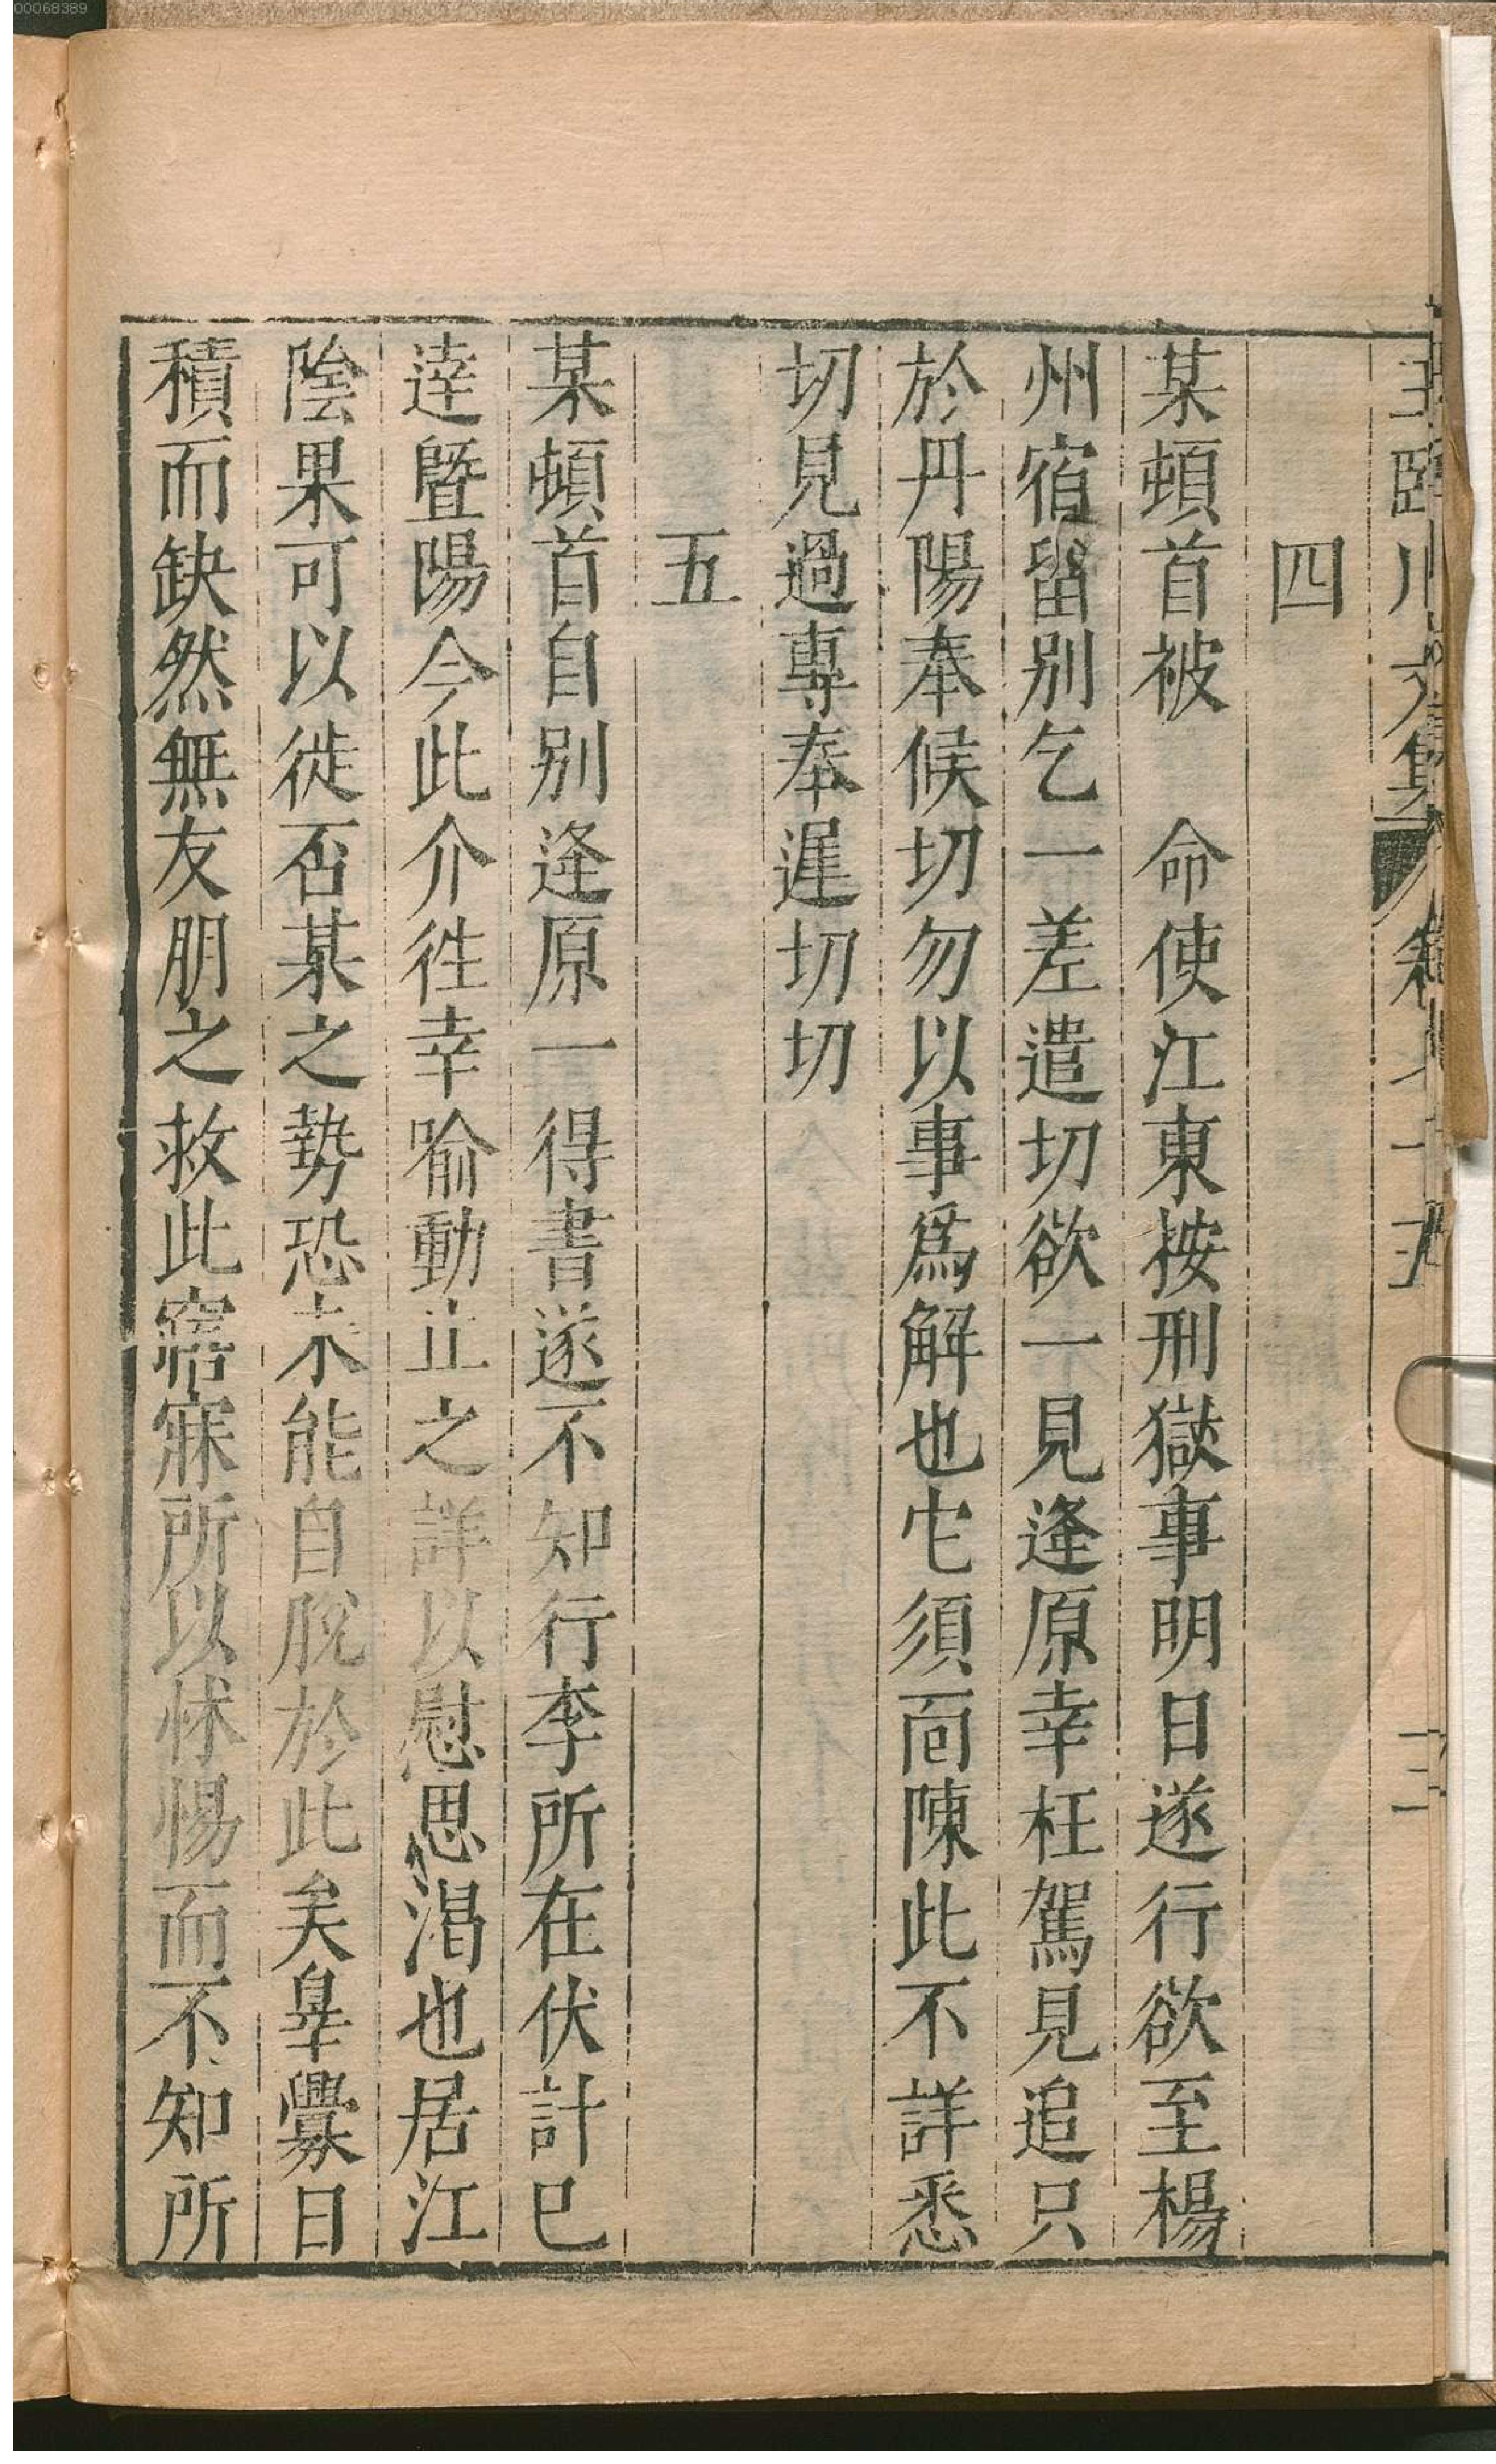 00068389
四
某頓首被　命使江東按刑獄事明日遂行欲至楊
州宿留别乞一差遣切欲一見逢原幸枉駕見追只
於丹陽奉候切勿以事爲解也它須面陳此不詳悉
切見過專奉遲切切
五
某頓首自别逢原一得書遂不知行李所在伏計已
達暨陽今此介徃幸喻動止之詳以慰思渴也居江
陰果可以徙否某之勢恐未能自脫於此矣辠釁日
積而缺然無友朋之救此寤寐所以怵惕而不知所